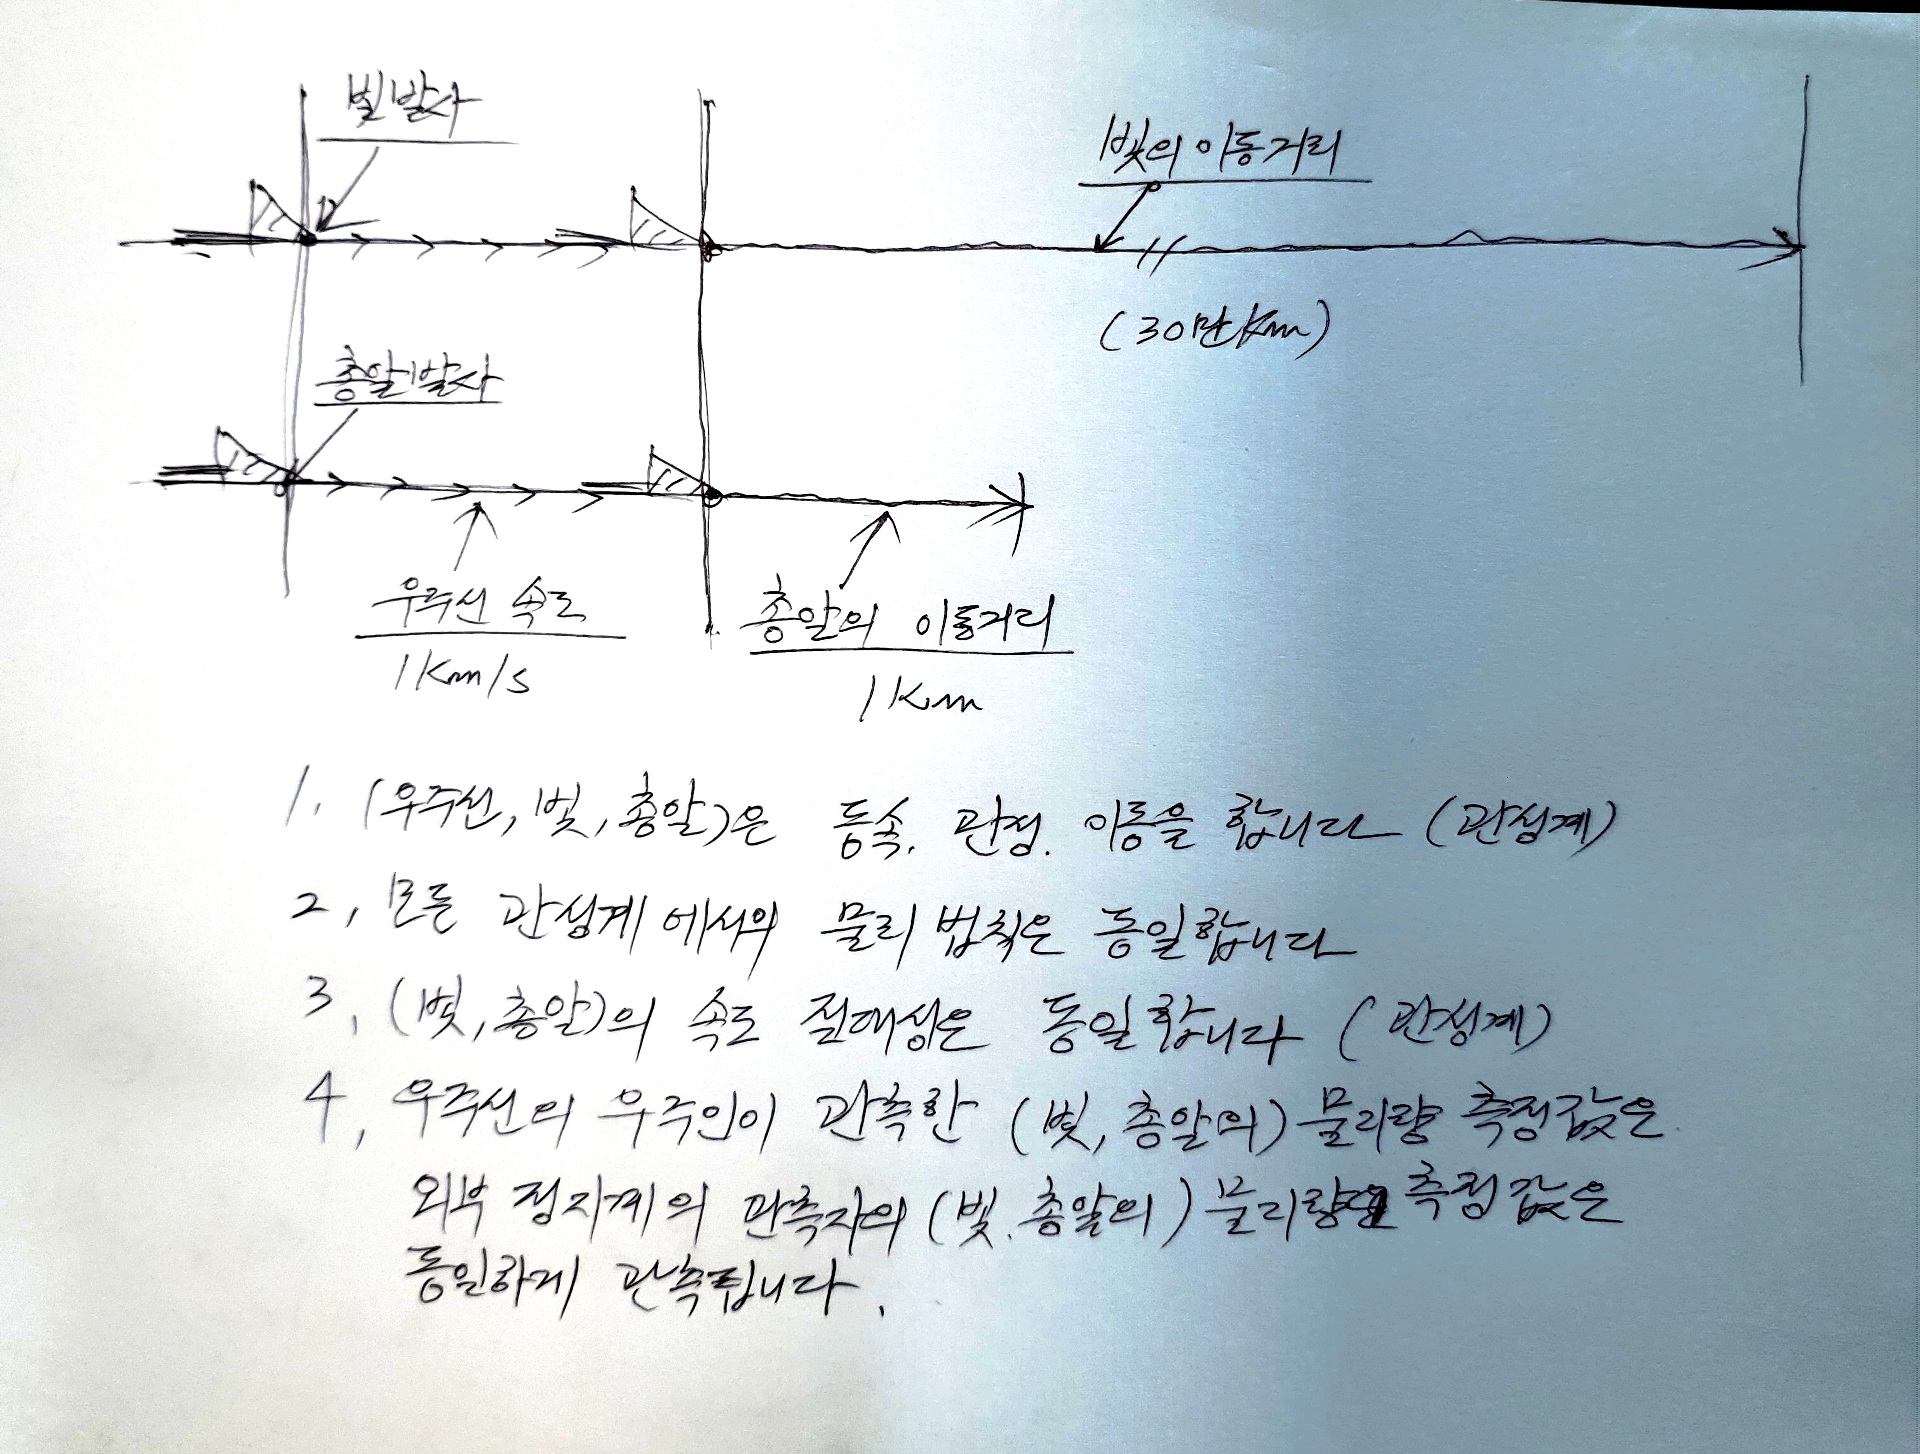 빛발사
빛의 이동거리
(30만Km)
총알발사
우주선 속도
1Km/s
총알의 이동거리
1Km
1. (우주선, 빛, 총알)은 등속. 관성. 이동을 합니다 (관성계)
2, 모든 관성계에서의 물리법칙은 동일합니다
3, (빛, 총알)의 속도 절대성은 동일합니다 (관성계)
4, 우주선의 우주인이 관측한 (빛, 총알의) 물리량 측정값은
외부 정지계의 관측자의 (빛. 총알의) 물리량 측정값은
동일하게 관측됩니다.